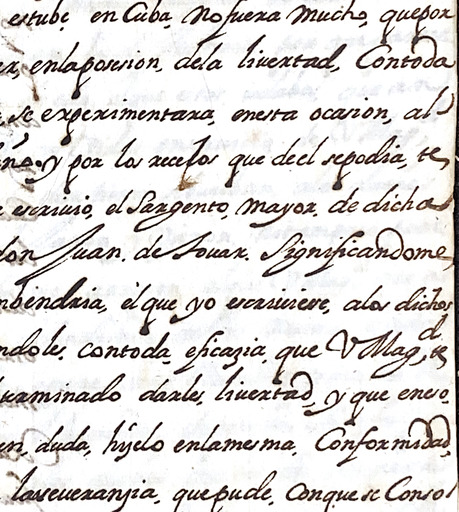 estube en Cuba, No fuera mucho, que por
er, en la posesion, de la livertad, Con toda
, se experimentara, en esta ocasion, al
y por los recelos que de el se podia, te
escrivio, el Sargento, mayor, de dicha
don Juan, de Tovar, Significandome,
mbendria, el que yo escriviere, a los dichos
ndoles, con toda, eficazia, que V Magd,
terminado darles, livertad, y que en eso,
en, duda, hiselo en la mesma, Conformidad,
que pude, Con que se Conso